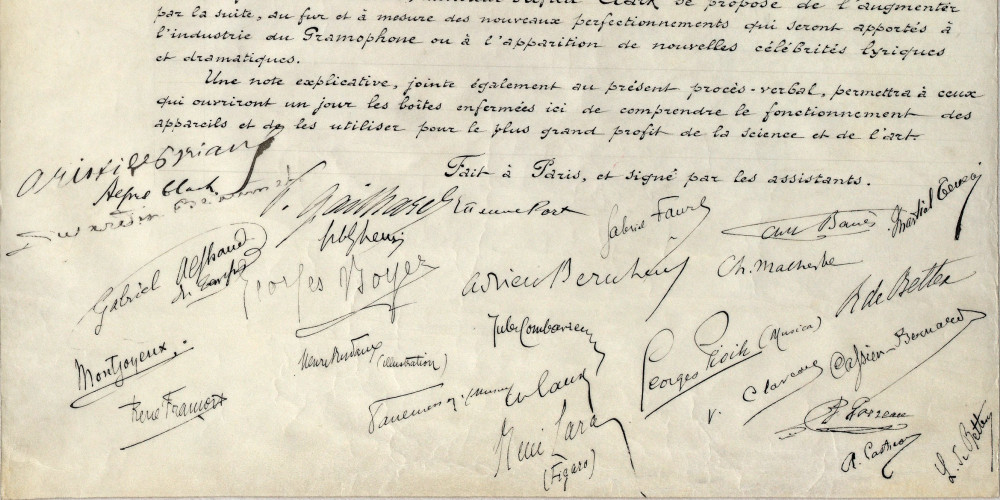 se propose de l'augmenter
par la suite, au fur et à mesure des nouveaux perfectionnements qui seront apportés à
l'industrie du Gramophone ou à l'apparition de nouvelles célébrités lyriques
et dramatiques.
Une note explicative, jointe également au présent procès-verbal, permettra à ceux
qui ouvriront un jour les boîtes enfermées ici de comprendre le fonctionnement des
appareils et de les utiliser pour le plus grand profit de la science et de l'art.
Fait à Paris, et signé par les assistants.
Aristide Briand
Alfred Clark
Gailhard
Etienne Port
Gabriel Fauré
Banès
Gabriel
Georges Boyer
Adrien Bernheim
Ch. Malherbe
R de Bettex
Jules Combarieu
Montjoyeux.
(illustration)
Georges Pioch (Musica)
Cassien-Bernard
René Framort
René Lara
(Figaro)